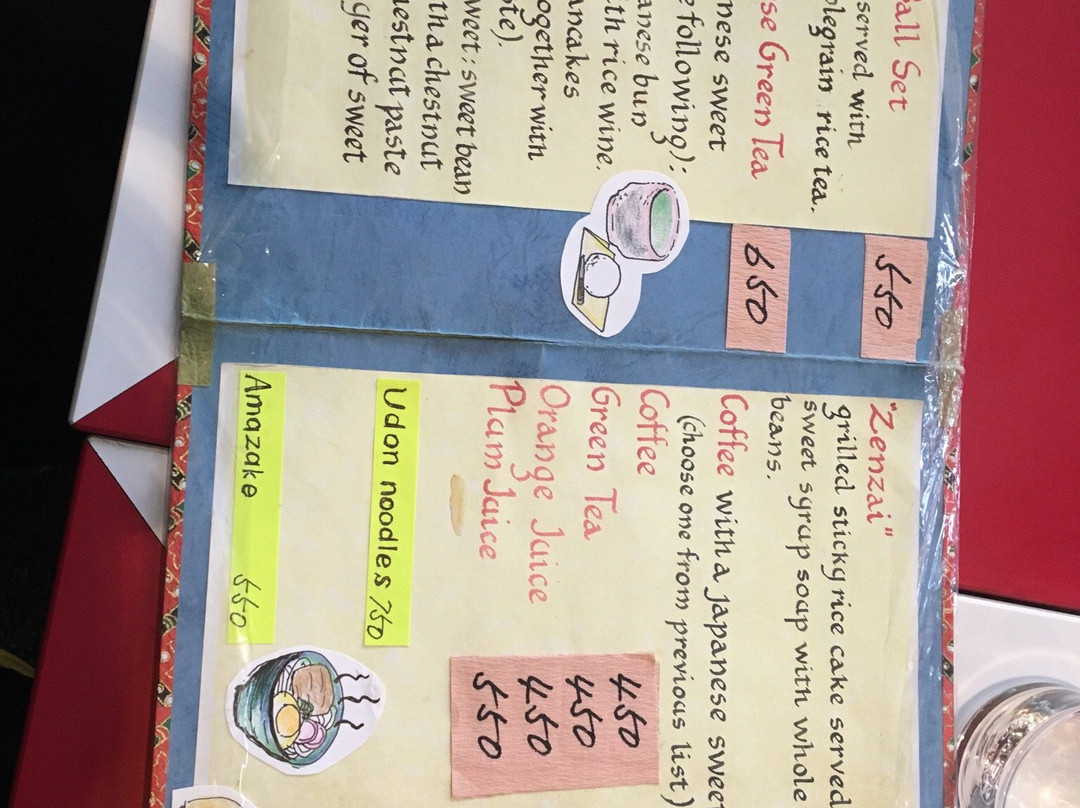 Ball Set
served with
rice tea.
550
Green Tea
650
sweet
following):
bun
rice wine.
together with
sweet: sweet bean
a chestnut
chestnut paste
of sweet
"Zenzai"
grilled sticky rice cake served
sweet syrup soup with whole
beans.
Coffee with a Japanese sweet
(choose one from previous list.)
Coffee 450
Green Tea 450
Orange Juice 450
Plum Juice 550
Udon noodles 750
Amazake 550